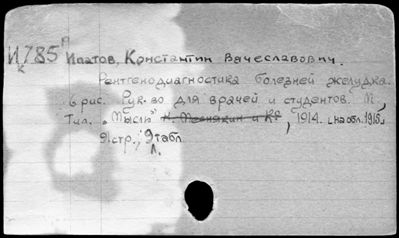 И 785 Ипатов, Константин Вячеславович.
К
Рентгенодиагностика болезней желудка.
6 рис. Рук-во для врачей и студентов. М.,
Тип. „Мысль" Н. Меснянкин и К°, 1914. [на обл. 1915]
91 стр., 9 табл.
л.